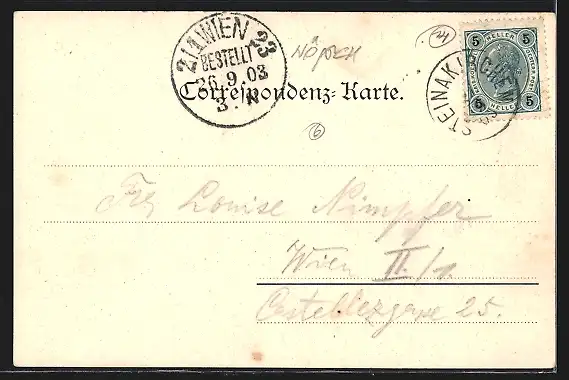 2/1 WIEN 2 3
BESTELLT
26.9.03
3.N
NÖ/Sch
24
5 HELLER 5
5 HELLER 5
STEINAKIRCHEN
Correspondenz-Karte.
6
Frl Louise Nimpfer
Wien II./1.
Castellezgasse 25.